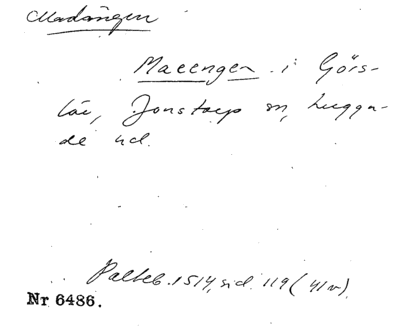 Madängen
Maeengen i Görs-
löv, Jonstorp sn, Luggu-
de hd.
Palteb. 1514, sid. 119 (41v).
Nr 6486.